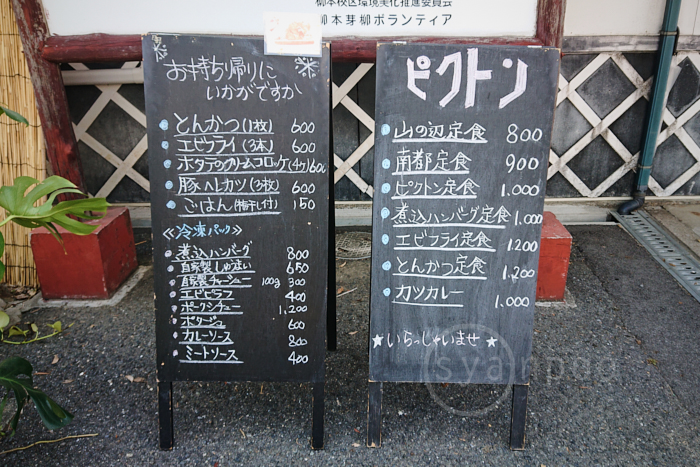 柳本校区環境美化推進委員会
柳本芽柳ボランティア
お持ち帰りに
いかがですか
とんかつ(1枚) 600
エビフライ(3本) 600
ホタテのクリームコロッケ(4ケ) 600
豚ヘレカツ(3枚) 600
ごはん(梅干し付) 150
≪冷凍パック≫
煮込ハンバーグ 800
自家製しゅうまい 650
自家製チャーシュー 100g 300
エビピラフ 400
ポークシチュー 1,200
ポタージュ 600
カレーソース 800
ミートソース 400
ピクトン
山の辺定食 800
南都定食 900
ピクトン定食 1,000
煮込ハンバーグ定食 1,000
エビフライ定食 1,200
とんかつ定食 1,200
カツカレー 1,000
★いらっしゃいませ★
syanpdg